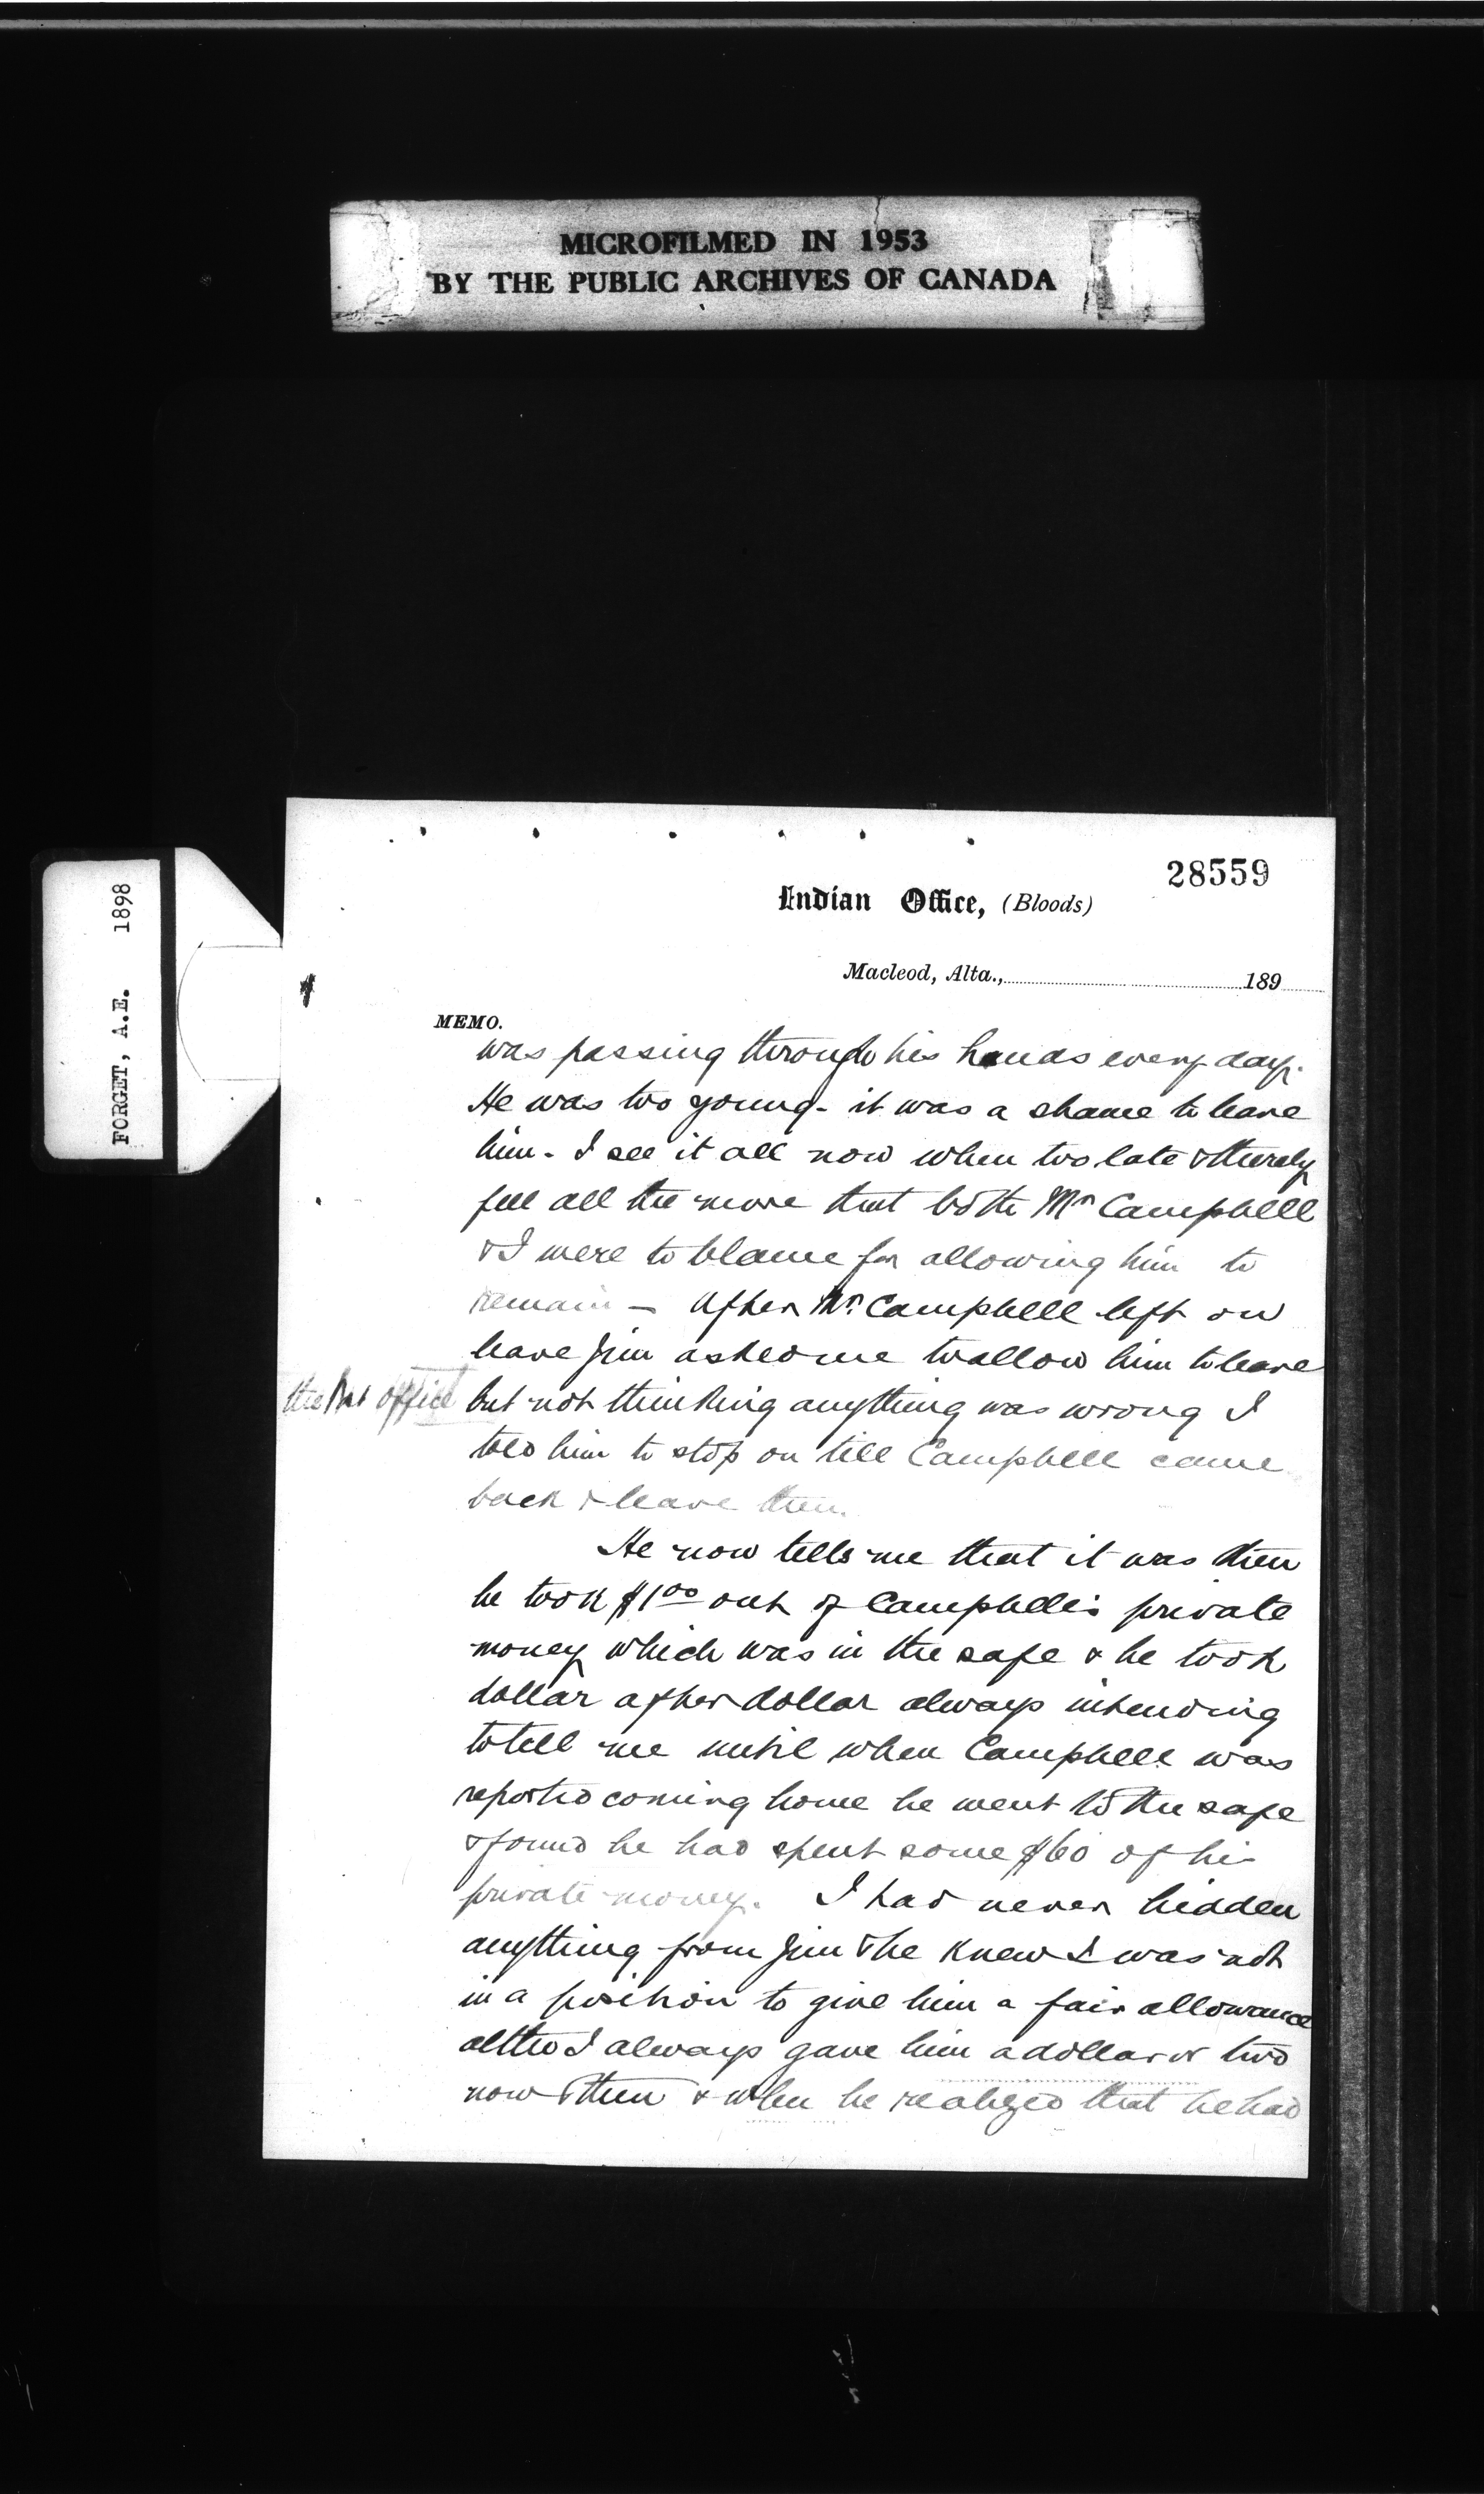 MICROFILMED IN 1953
BY THE PUBLIC ARCHIVES OF CANADA
FORGET, A.E. 1898
28559
Indian Office, (Bloods)
Macleod, Alta., 189
MEMO.
was passing through his hands every day.
He was too young - it was a shame to leave
him - I see it all now when too late & thereby
feel all the more that both Mr Campbell
& I were to blame for allowing him to
remain - After Mr. Campbell left on
leave Jim asked me to allow him to leave
the Post Office but not thinking anything was wrong I
told him to stop on till Campbell came
back & leave then.
He now tells me that it was then
he took $1.00 out of Campbell's private
money which was in the safe & he took
dollar after dollar always intending
to tell me until when Campbell was
reported coming home he went to the safe
& found he had spent some $60 of his
private money. I had never hidden
anything from Jim & he knew I was not
in a position to give him a fair allowance
altho I always gave him a dollar or two
now & then & when he realized that he had